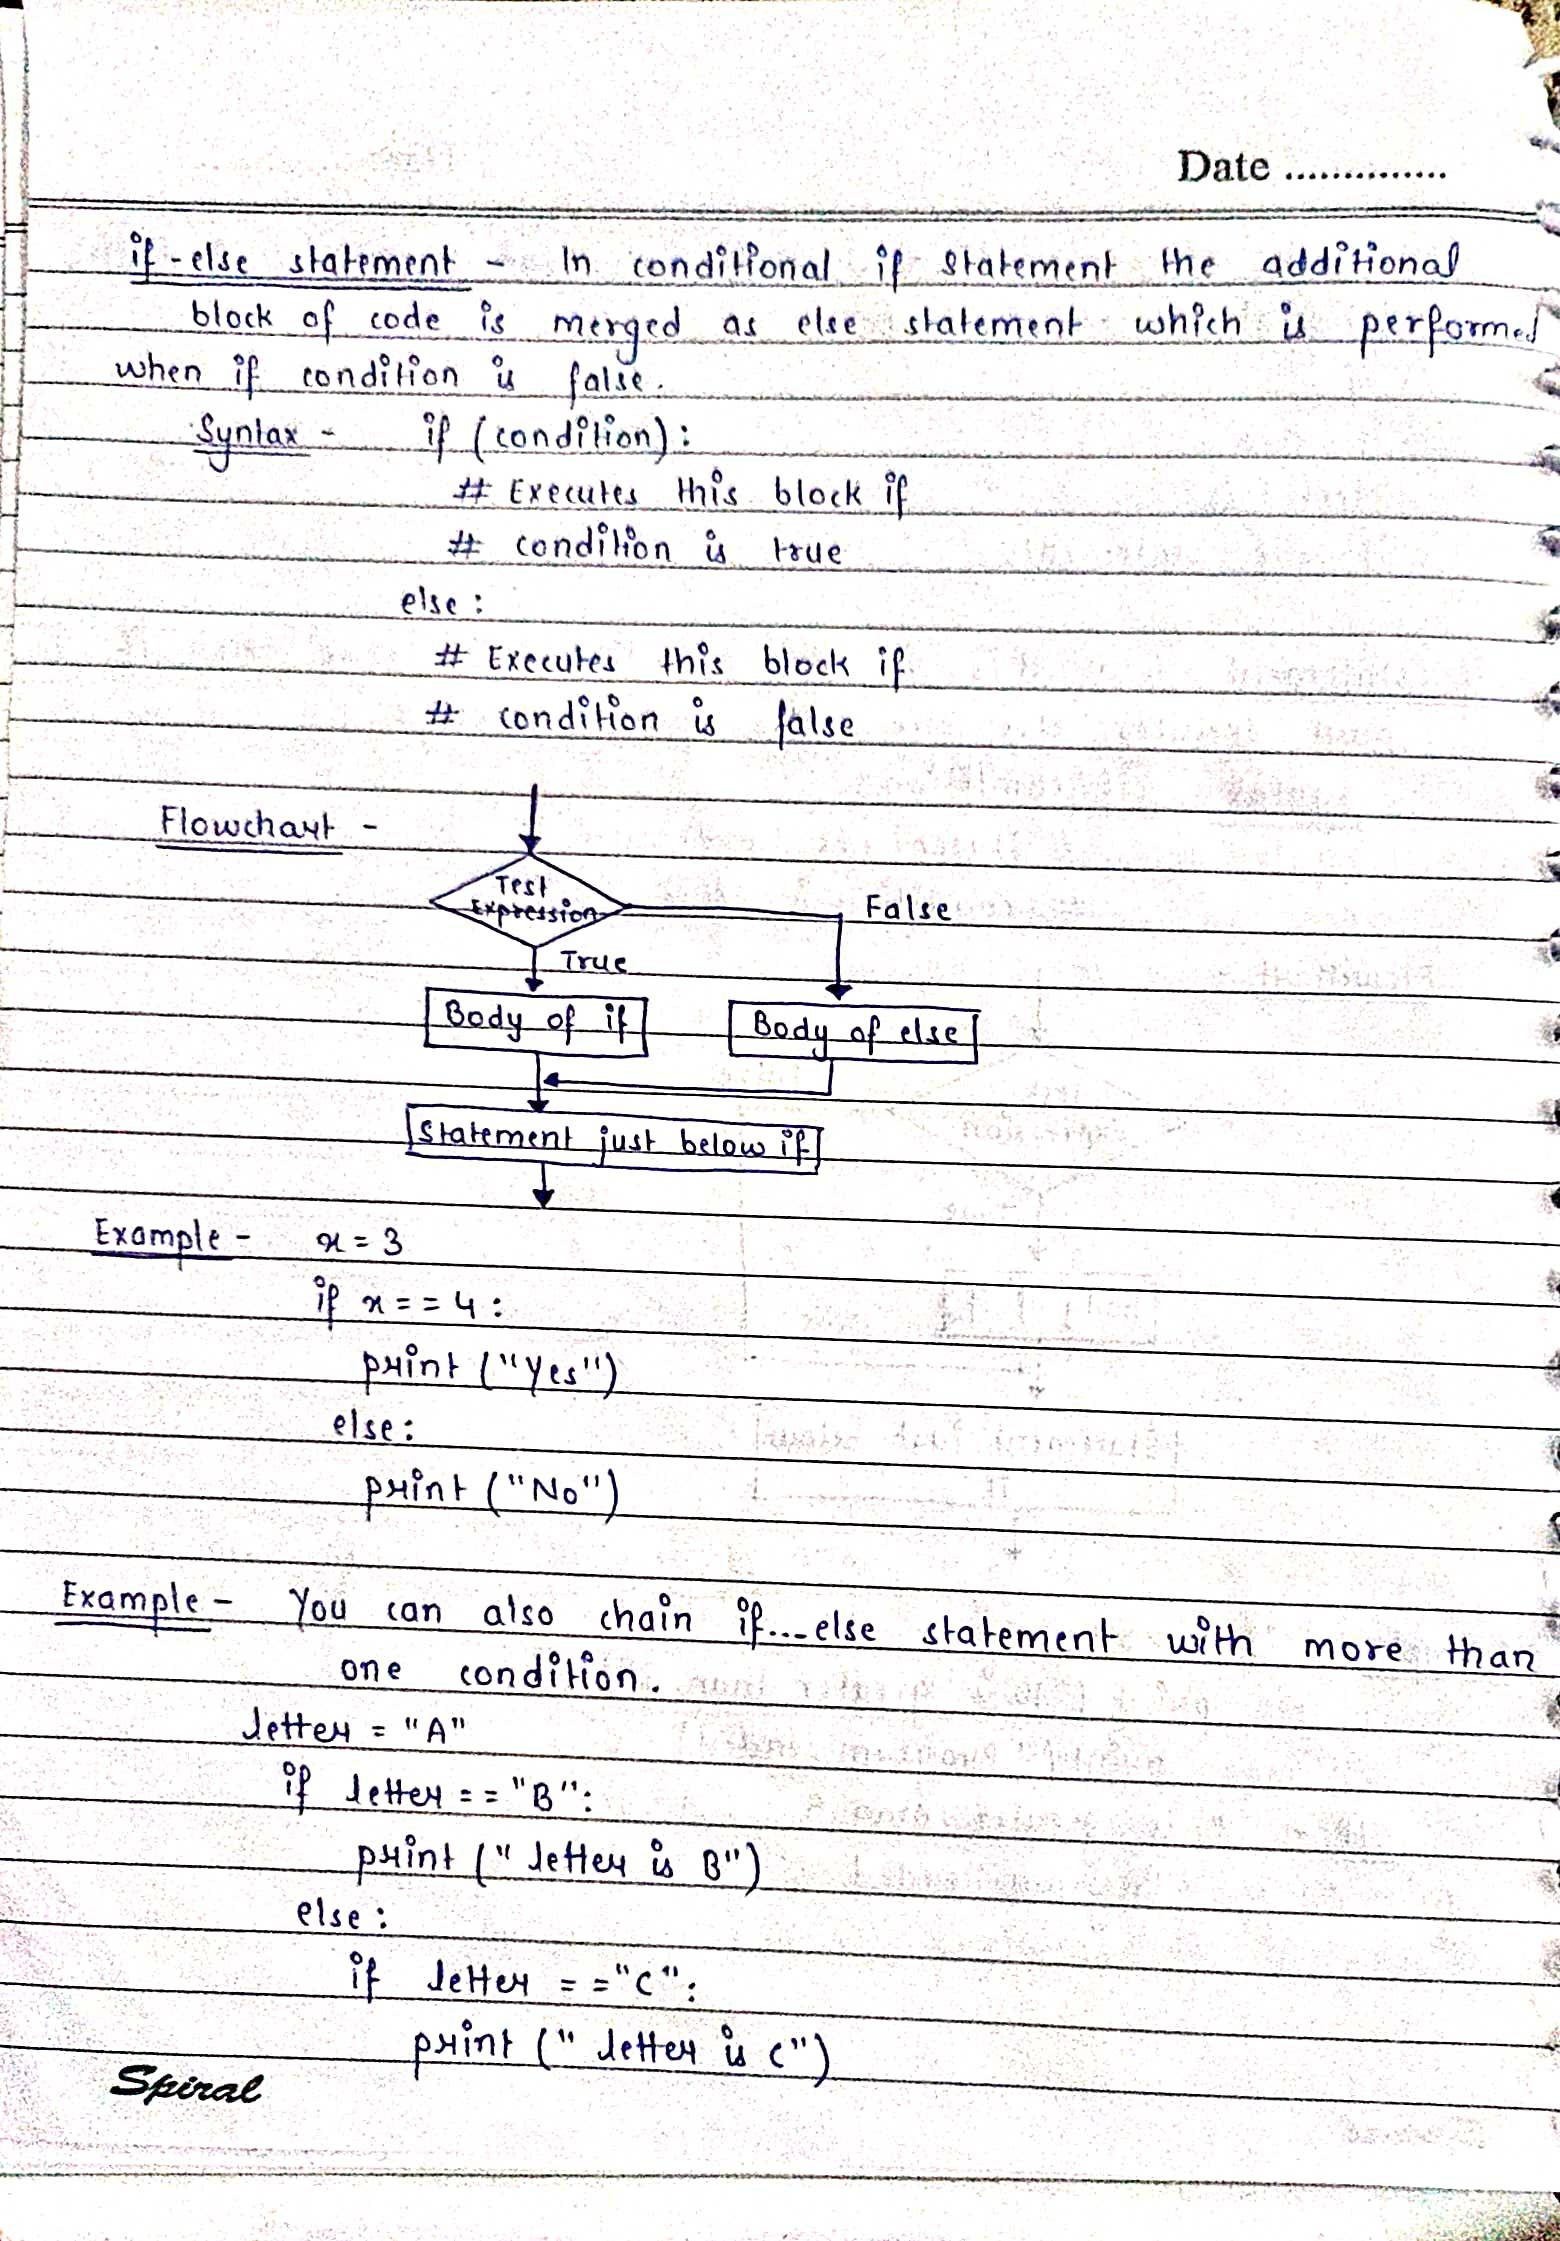 Date ..............
if-else statement - In conditional if statement the additional
block of code is merged as else statement which is performed
when if condition is false.
Syntax - if (condition):
# Executes this block if
# condition is true
else:
# Executes this block if
# condition is false
Flowchart -
Test
Expression
False
True
Body of if
Body of else
Statement just below if
Example - x = 3
if x == 4:
print ("Yes")
else:
print ("No")
Example - You can also chain if...else statement with more than
one condition.
letter = "A"
if letter == "B":
print ("letter is B")
else:
if letter == "C":
print ("letter is C")
Spiral